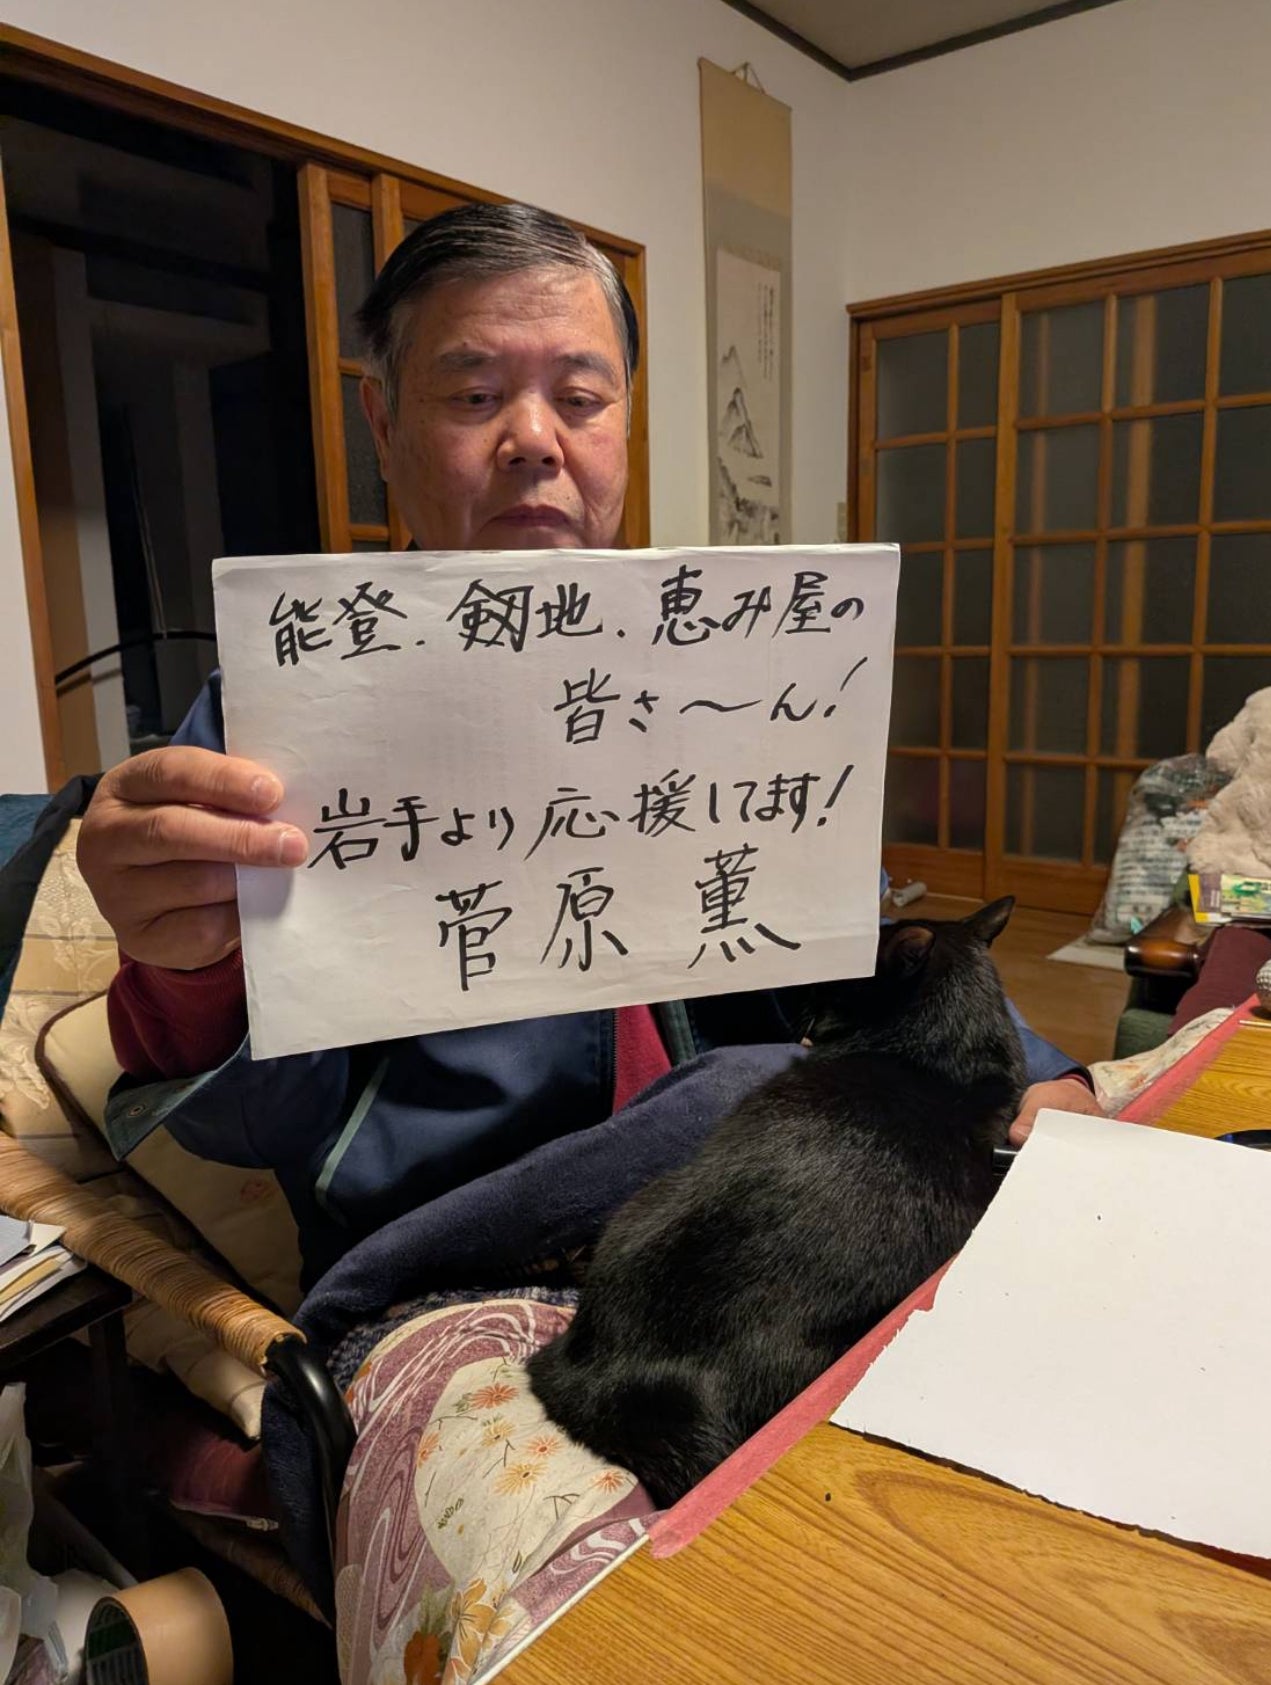 能登、剱地、恵み屋の
皆さ〜ん!
岩手より応援してます!
菅原 薫